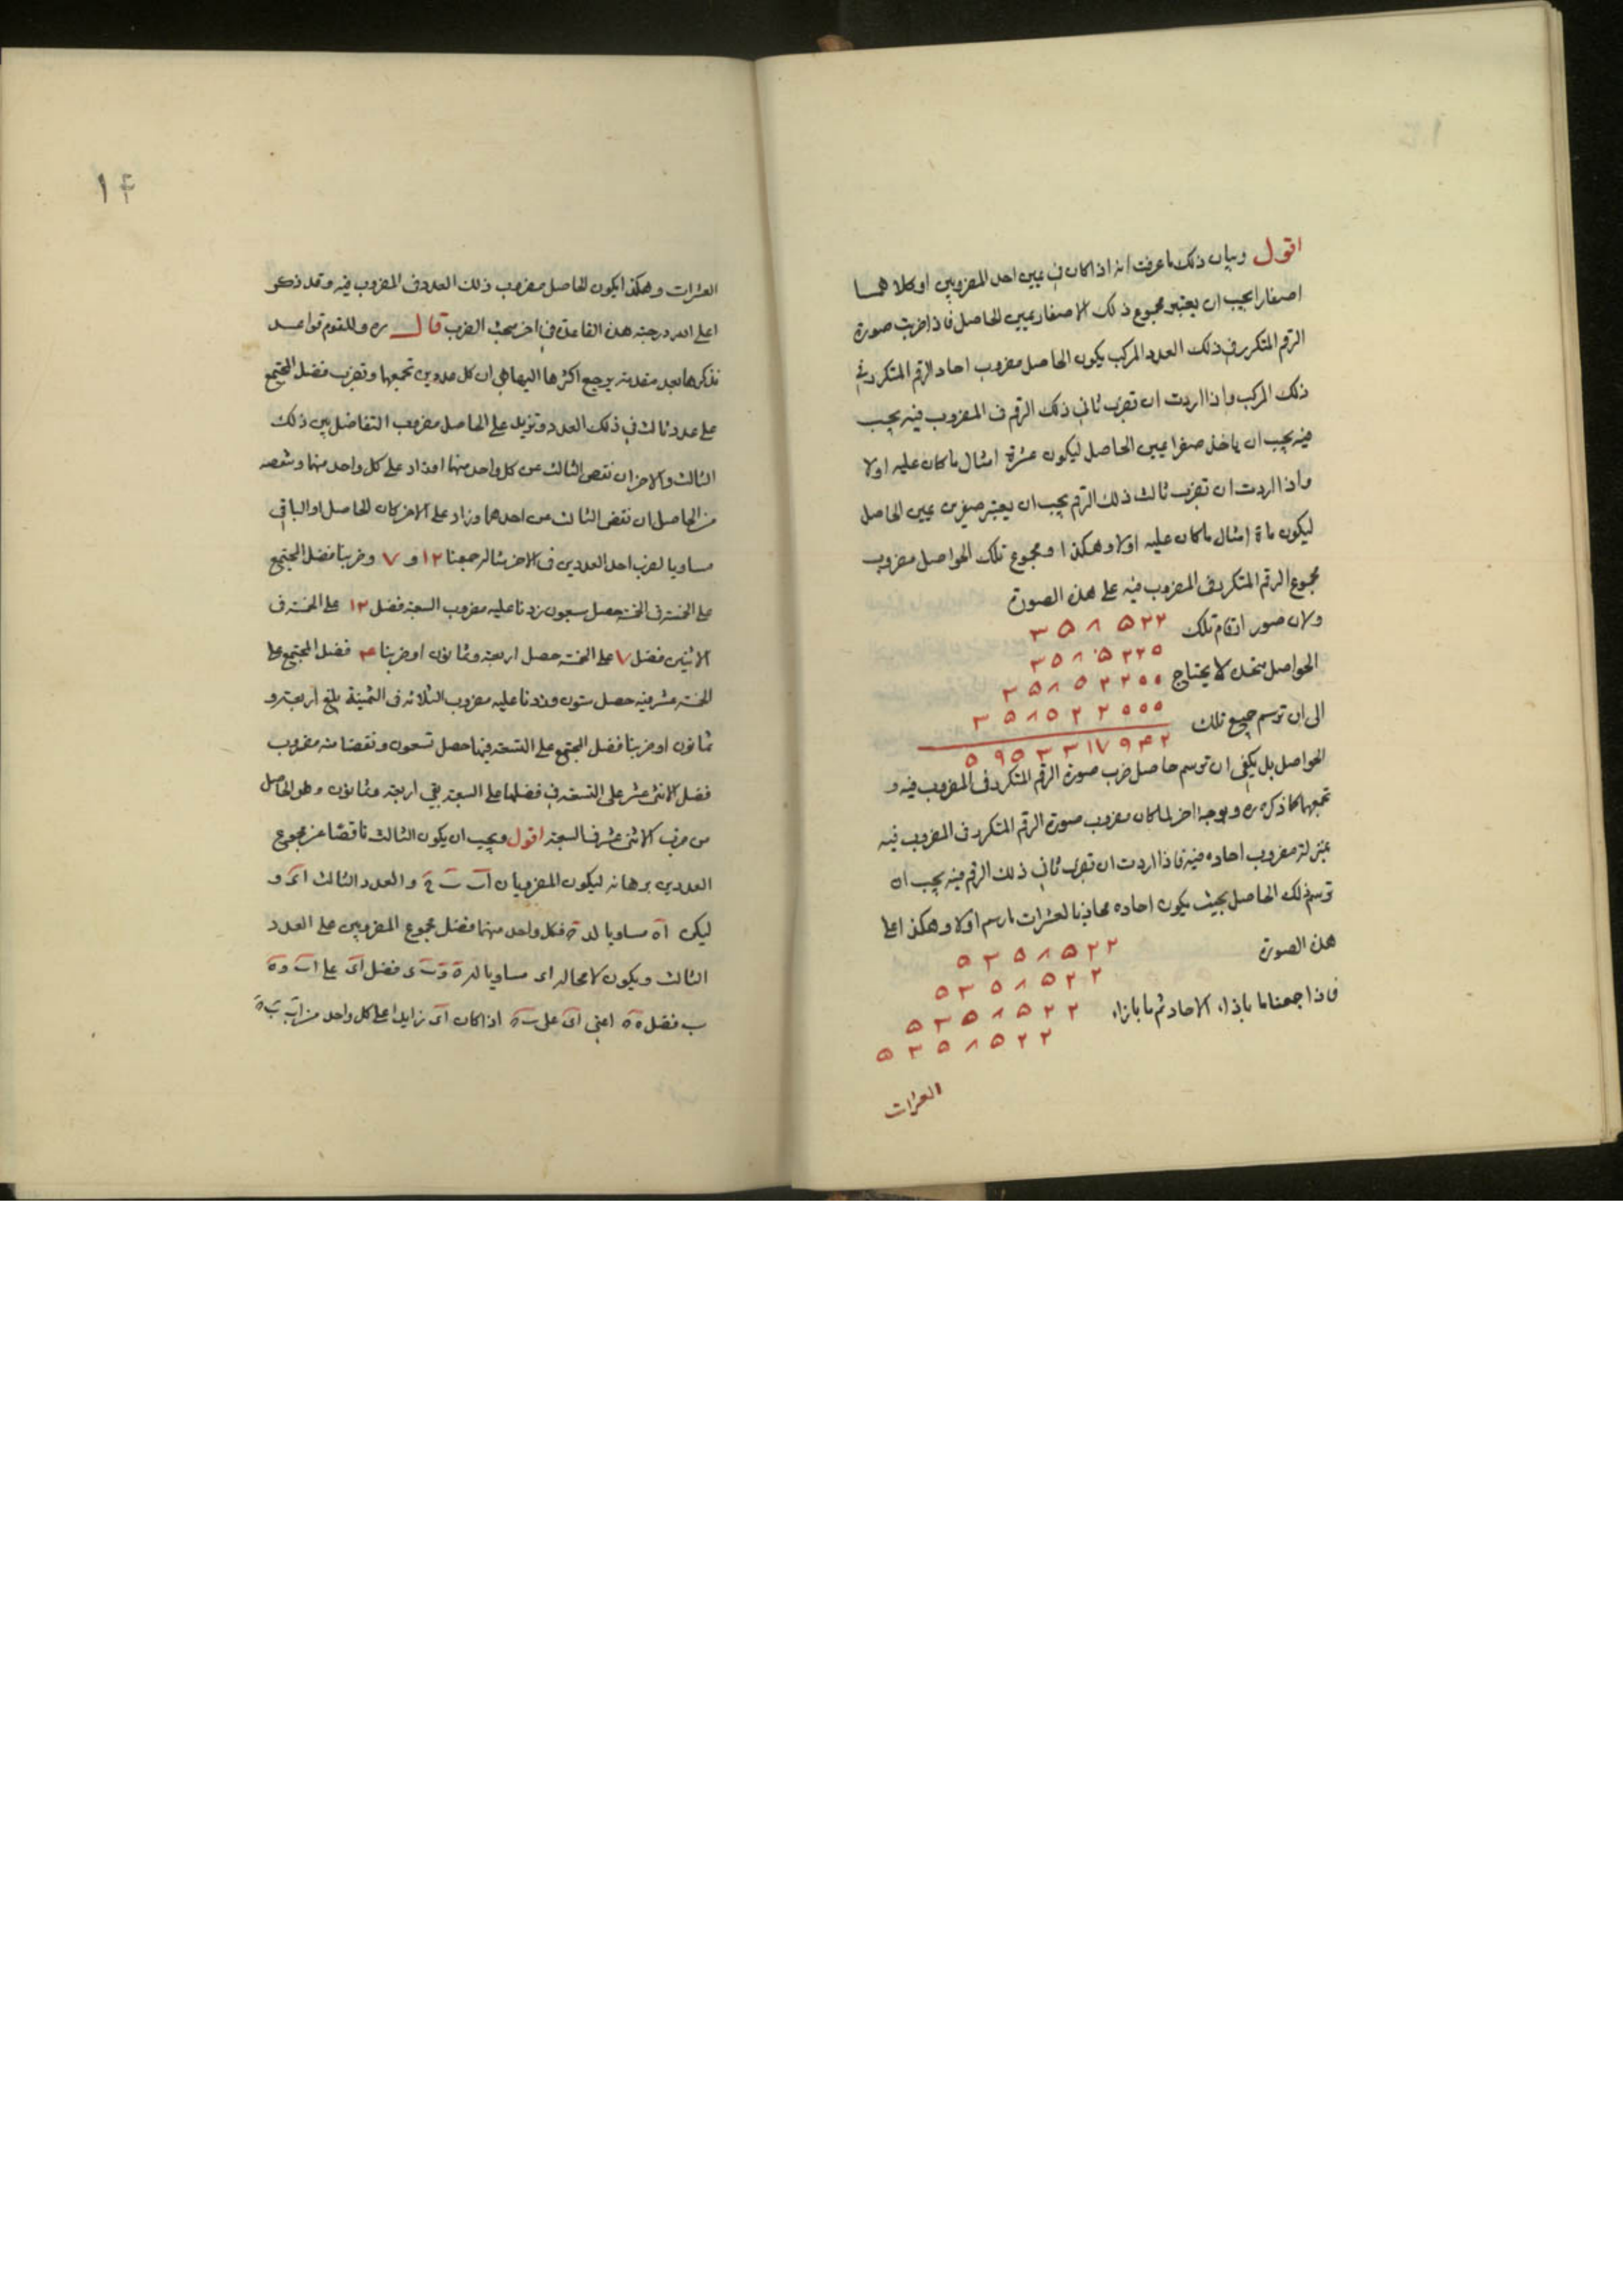 اقول وبيان ذلك ما عرفت انه اذا كان في يمين احد المضروبين او كلاهما
اصفارا يجب ان يعتبر مجموع ذلك الاصفار يمين الحاصل فاذا ضربت صورة
الرقم المتكرر في ذلك العدد المركب يكون الحاصل مضروب احاد الرقم المتكرر في
ذلك المركب واذا اردت ان تضرب ثاني ذلك الرقم في المضروب فيه يجب
فيه يجب ان ياخذ صفرا يمين الحاصل ليكون عشرة امثال ما كان عليه اولا
واذا اردت ان تضرب ثالث ذلك الرقم يجب ان يعتبر صفرين يمين الحاصل
ليكون ماة امثال ما كان عليه اولا وهكذا ومجموع تلك الحواصل مضروب
مجموع الرقم المتكرر في المضروب فيه على هذه الصورة
ولان صور ارقام تلك ٣٥٨٥٢٢
الحواصل متحدة لا يحتاج ٣٥٨٥٢٢٥
٣٥٨٥٢٢٥٥
الى ان ترسم جميع تلك ٣٥٨٥٢٢٥٥٥
٥٩٥٣٣١٧٩٤٢
الحواصل بل يكفي ان ترسم حاصل ضرب صورة الرقم المتكرر في المضروب فيه و
تجمعها كما ذكره ره وبوجه اخر لما كان مضروب صورة الرقم المتكرر في المضروب فيه
بمنزلة مضروب احاده فيه فاذا اردت ان تضرب ثاني ذلك الرقم فيه يجب ان
ترسم ذلك الحاصل بحيث يكون احاده محاذيا لعشرات ما رسم اولا وهكذا على
هذه الصورة ٥٣٥٨٥٢٢
٥٣٥٨٥٢٢
فاذا جمعنا ما باذاء الاحاد ثم ما بازاء ٥٣٥٨٥٢٢
٥٣٥٨٥٢٢
العشرات
١٤
العشرات وهكذا يكون الحاصل مضروب ذلك العدد في المضروب فيه وقد ذكر
اعلى الله درجته هذه القاعدة في اخر مبحث الضرب قال ره وللقوم قواعد
نذكرها بعد مقدمة يرجع اكثرها اليها هي ان كل عددين تجمعها وتضرب فضل المجتمع
على عدد ثالث في ذلك العدد وتزيد على الحاصل مضروب التفاضل بين ذلك
الثالث والاخر ان نقص الثالث عن كل واحد منهما او زاد على كل واحد منهما وتنقصه
من الحاصل ان نقص الثالث من احدهما وزاد على الاخر كان الحاصل او الباقي
مساويا لضرب احد العددين في الاخر مثاله جمعنا ١٢ و ٧ وضربنا فضل المجتمع
على الخمسة في الخمسة حصل سبعون زدنا عليه مضروب السبعة فضل ١٢ على الخمسة في
الاثنين فضل ٧ على الخمسة حصل اربعة وثمانون او ضربنا ٤ فضل المجتمع على
الخمسة عشر فيه حصل ستون وزدنا عليه مضروب الثلاثة في الثمنية بلغ اربعة و
ثمانون او ضربنا فضل المجتمع على التسعة فيها حصل تسعون ونقصنا منه مضروب
فضل الاثنى عشر على التسعة في فضلها على السبعة بقي اربعة وثمانون وهو الحاصل
من ضرب الاثنى عشر في السبعة اقول ويجب ان يكون الثالث ناقصا عن مجموع
العددين برهانه ليكون المضروبان اب ب ج والعدد الثالث اى و
ليكن اه مساويا لد ة فكل واحد منهما فضل مجموع المضروبين على العدد
الثالث ويكون لا محالة اى مساويا له و ب ى فضل اى على اب و ه
ب فضل ه ة اعنى اى على ب ة اذا كان اى زايدا على كل واحد من اب ب ة